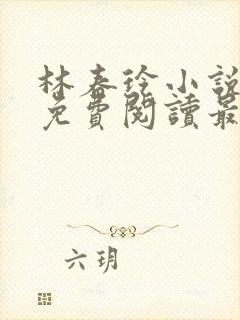 林春玲小說
免費閱讀最
六玥